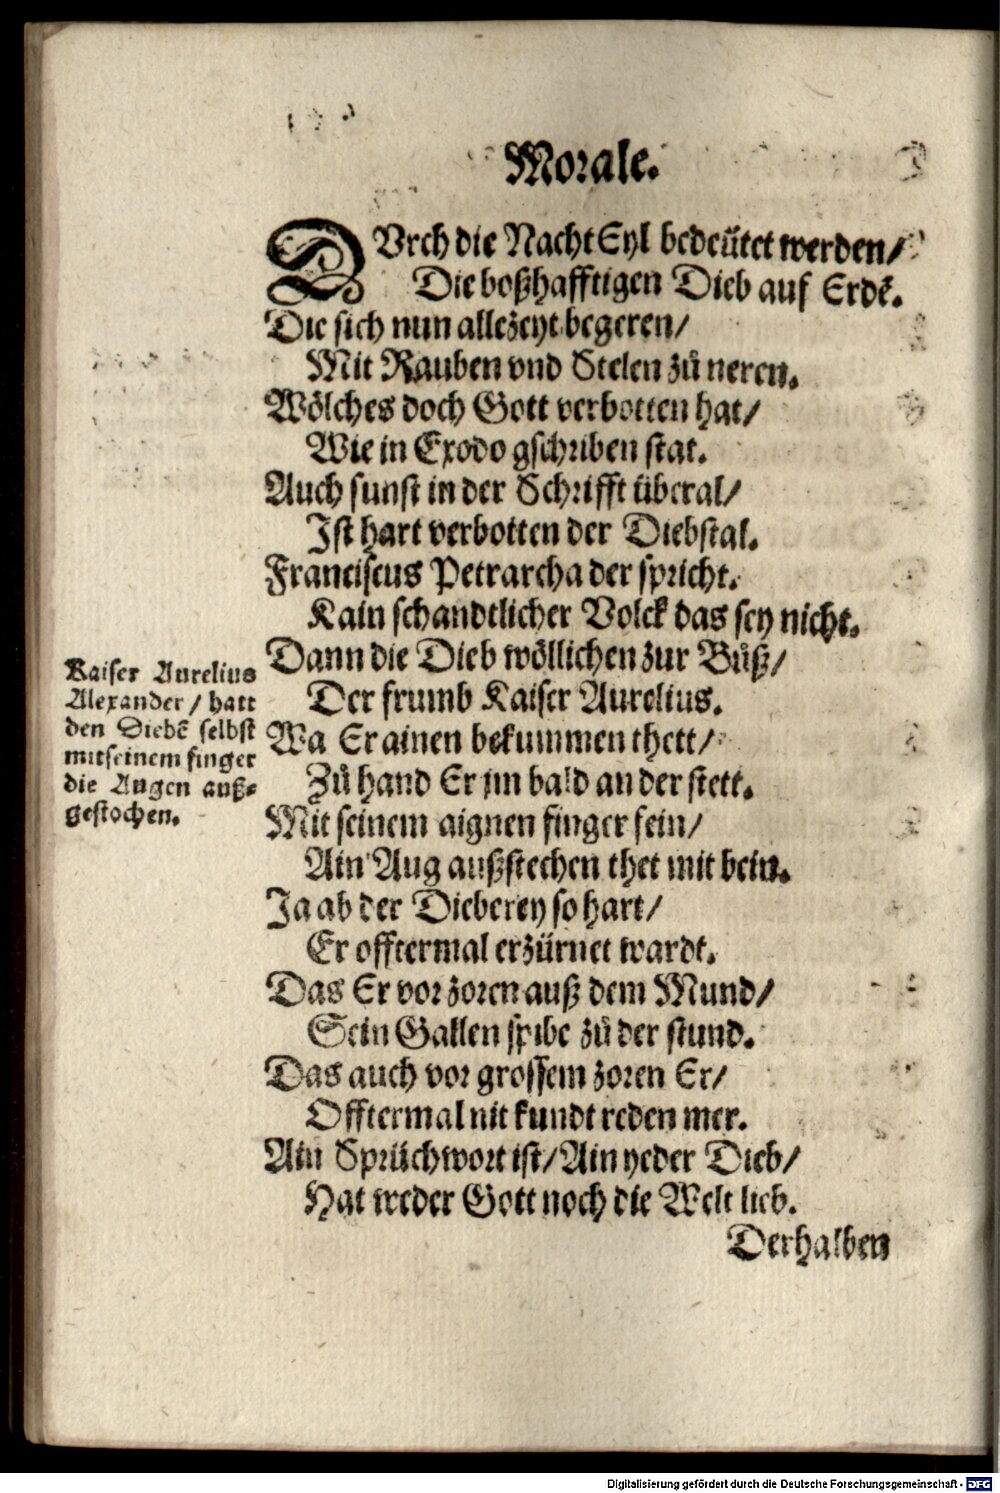 Morale.
DVrch die Nacht Eyl bedeütet werden/
Die boßhafftigen Dieb auf Erdẽ.
Die sich nun allezeyt begeren/
Mit Rauben vnd Stelen zů neren.
Wölches doch Gott verbotten hat/
Wie in Exodo gschriben stat.
Auch sunst in der Schrifft überal/
Ist hart verbotten der Diebstal.
Franciscus Petrarcha der spricht.
Kain schandtlicher Volck das sey nicht.
Dann die Dieb wöllichen zur Bůß/
Der frumb Kaiser Aurelius.
Wa Er ainen bekummen thett/
Zů hand Er jm bald an der stett.
Mit seinem aignen finger fein/
Ain Aug außstechen thet mit bein.
Ja ab der Dieberey so hart/
Er offtermal erzürnet wardt.
Das Er vor zoren auß dem Mund/
Sein Gallen spibe zů der stund.
Das auch vor grossem zoren Er/
Offtermal nit kundt reden mer.
Ain Sprüchwort ist/ Ain yeder Dieb/
Hat weder Gott noch die Welt lieb.
Derhalben
Kaiser Aurelius
Alexander / hatt
den Diebẽ selbst
mit seinem finger
die Augen auß⸗
gestochen.
Digitalisierung gefördert durch die Deutsche Forschungsgemeinschaft - DFG